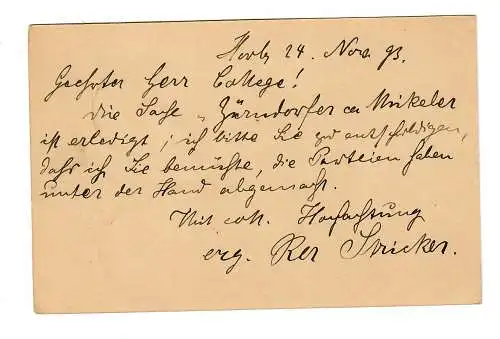 Horb 24. Nov. 93.
Geehrter Herr College!
Die Sache „Zürndorfer ca Mükeler
ist erledigt; ich bitte Sie zu entschuldigen,
daß ich Sie bemühte, die Parteien haben
unter der Hand abgemacht.
Mit coll. Hochachtung
erg. Stricker.